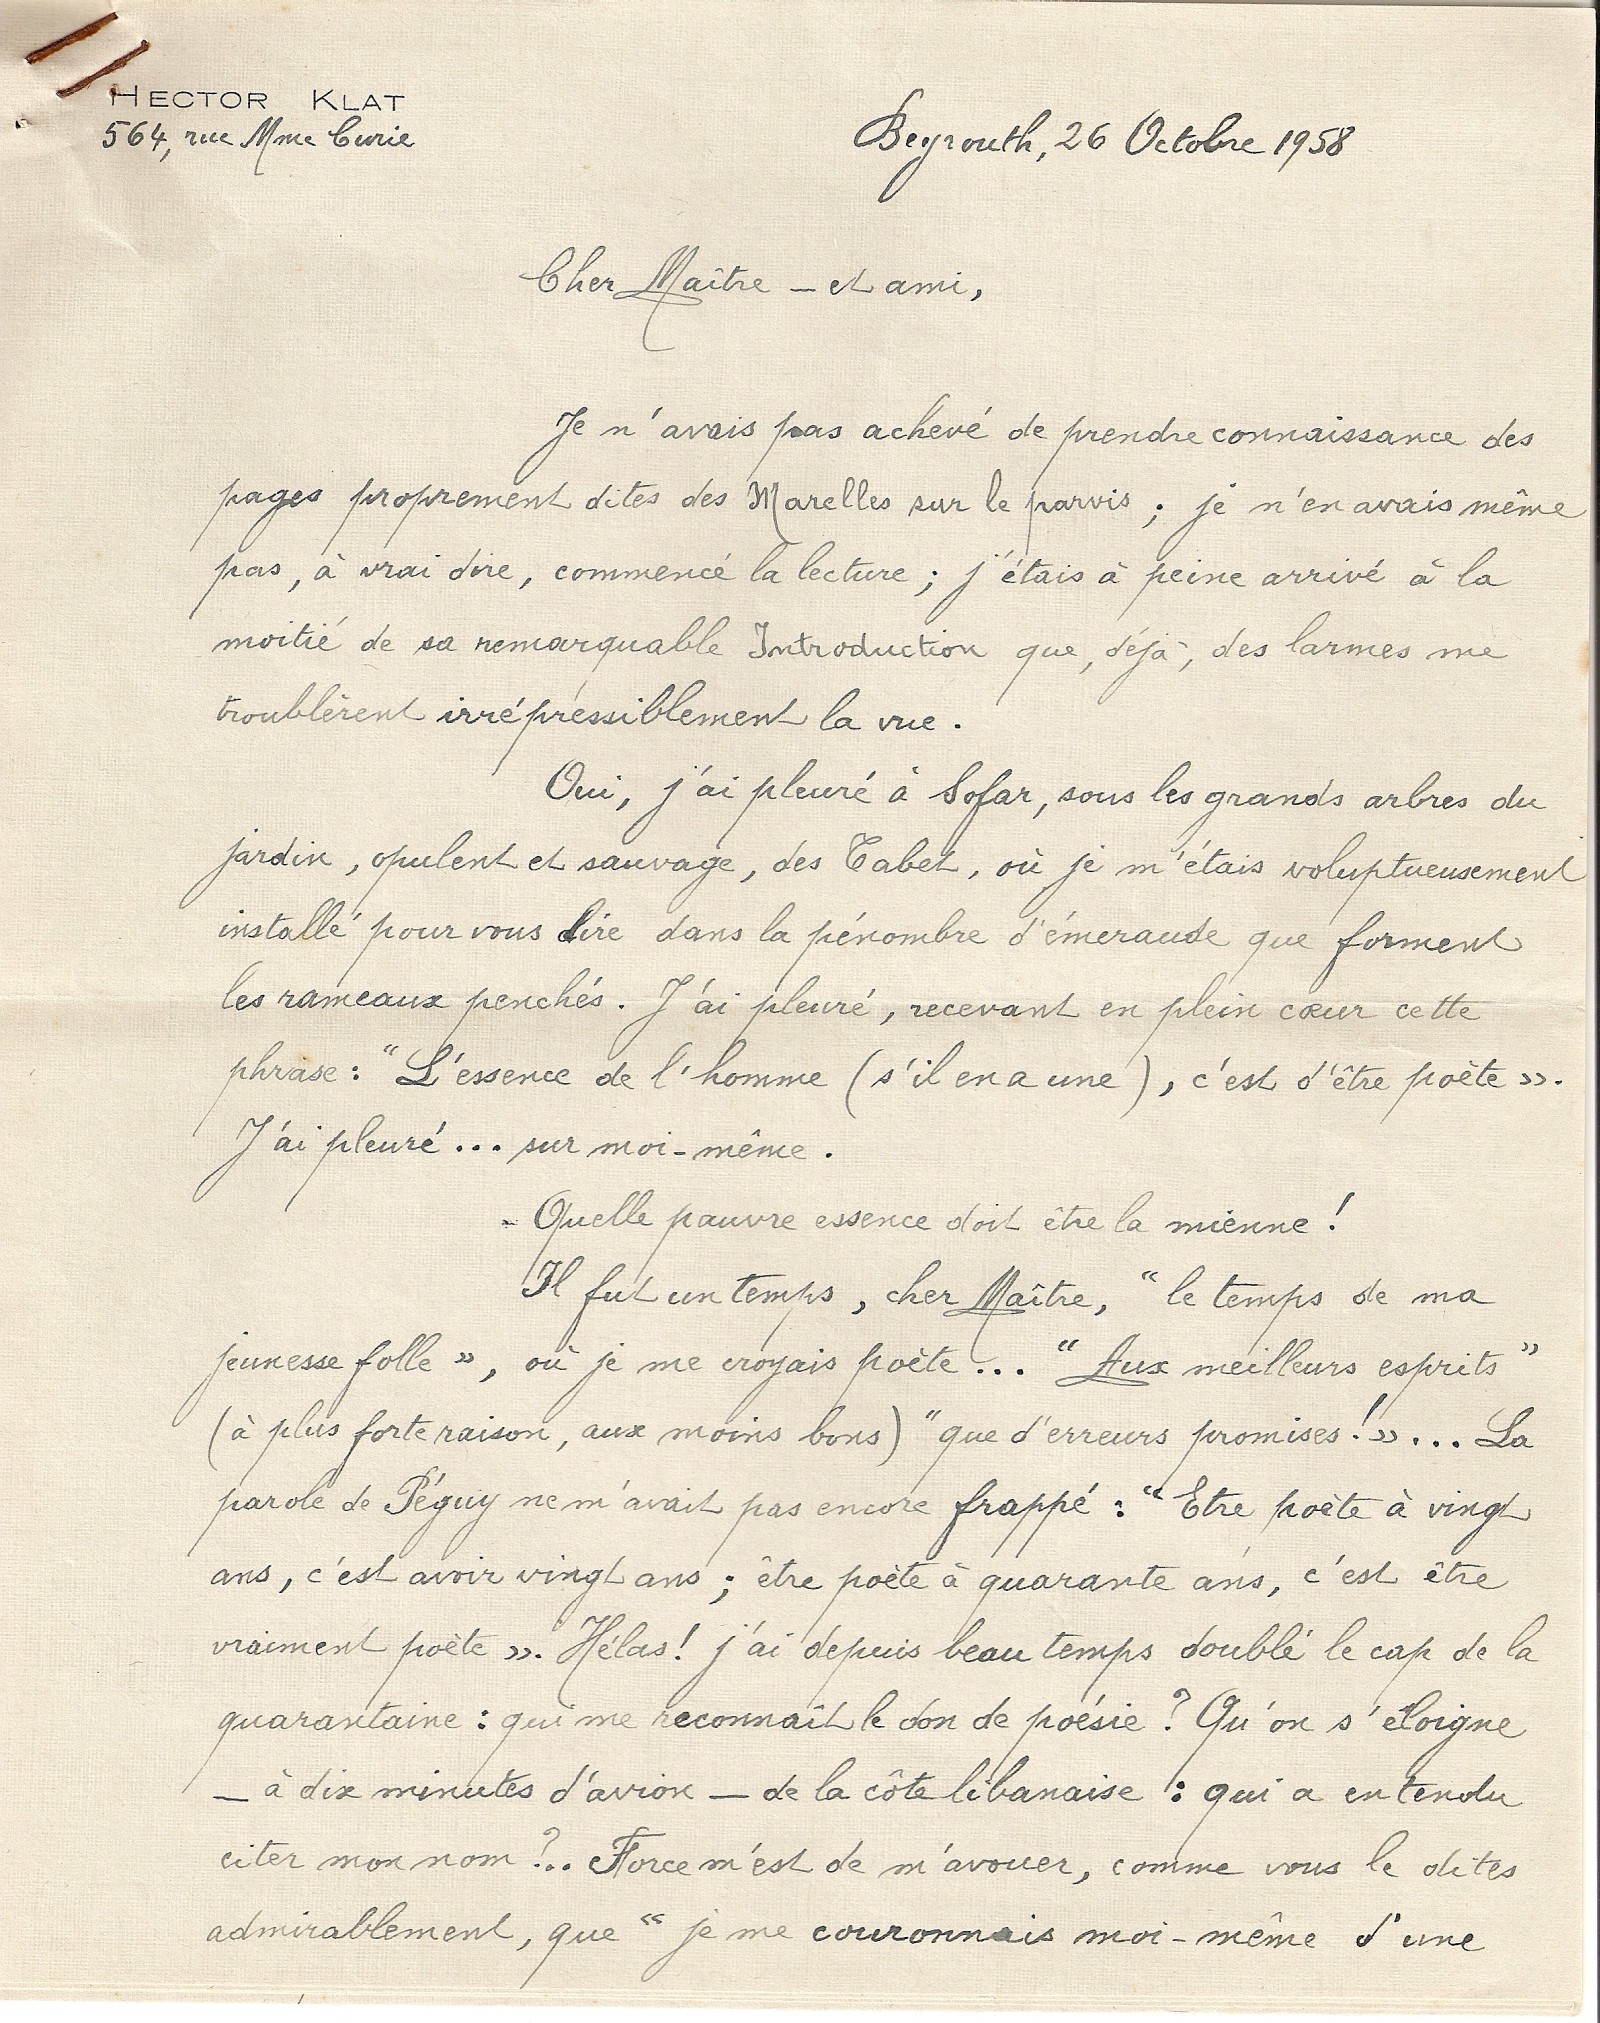 HECTOR KLAT
564, rue Mme Curie
Beyrouth, 26 Octobre 1958
Cher Maître – et ami,
Je n'avais pas achevé de prendre connaissance des
pages proprement dites des Marelles sur le parvis ; je n'en avais même
pas, à vrai dire, commencé la lecture ; j'étais à peine arrivé à la
moitié de sa remarquable Introduction que, déjà, des larmes me
troublèrent irrépressiblement la vue.
Oui, j'ai pleuré à Sofar, sous les grands arbres du
jardin, opulent et sauvage, des Tabet, où je m'étais voluptueusement
installé pour vous lire dans la pénombre d'émeraude que forment
les rameaux penchés. J'ai pleuré, recevant en plein cœur cette
phrase : “L'essence de l'homme (s'il en a une), c'est d'être poète ».
J'ai pleuré ... sur moi-même.
- Quelle pauvre essence doit être la mienne !
Il fut un temps, cher Maître, “le temps de ma
jeunesse folle », où je me croyais poète ... “Aux meilleurs esprits”
(à plus forte raison, aux moins bons) “que d'erreurs promises ! » ... La
parole de Péguy ne m'avait pas encore frappé : “Etre poète à vingt
ans, c'est avoir vingt ans ; être poète à quarante ans, c'est être
vraiment poète ». Hélas ! j'ai depuis beau temps doublé le cap de la
quarantaine : qui me reconnaît le don de poésie ? Qu'on s'éloigne
– à dix minutes d'avion – de la côte libanaise : qui a entendu
citer mon nom ?.. Force m'est de m'avouer, comme vous le dites
admirablement, que “je me couronnais moi-même d'une